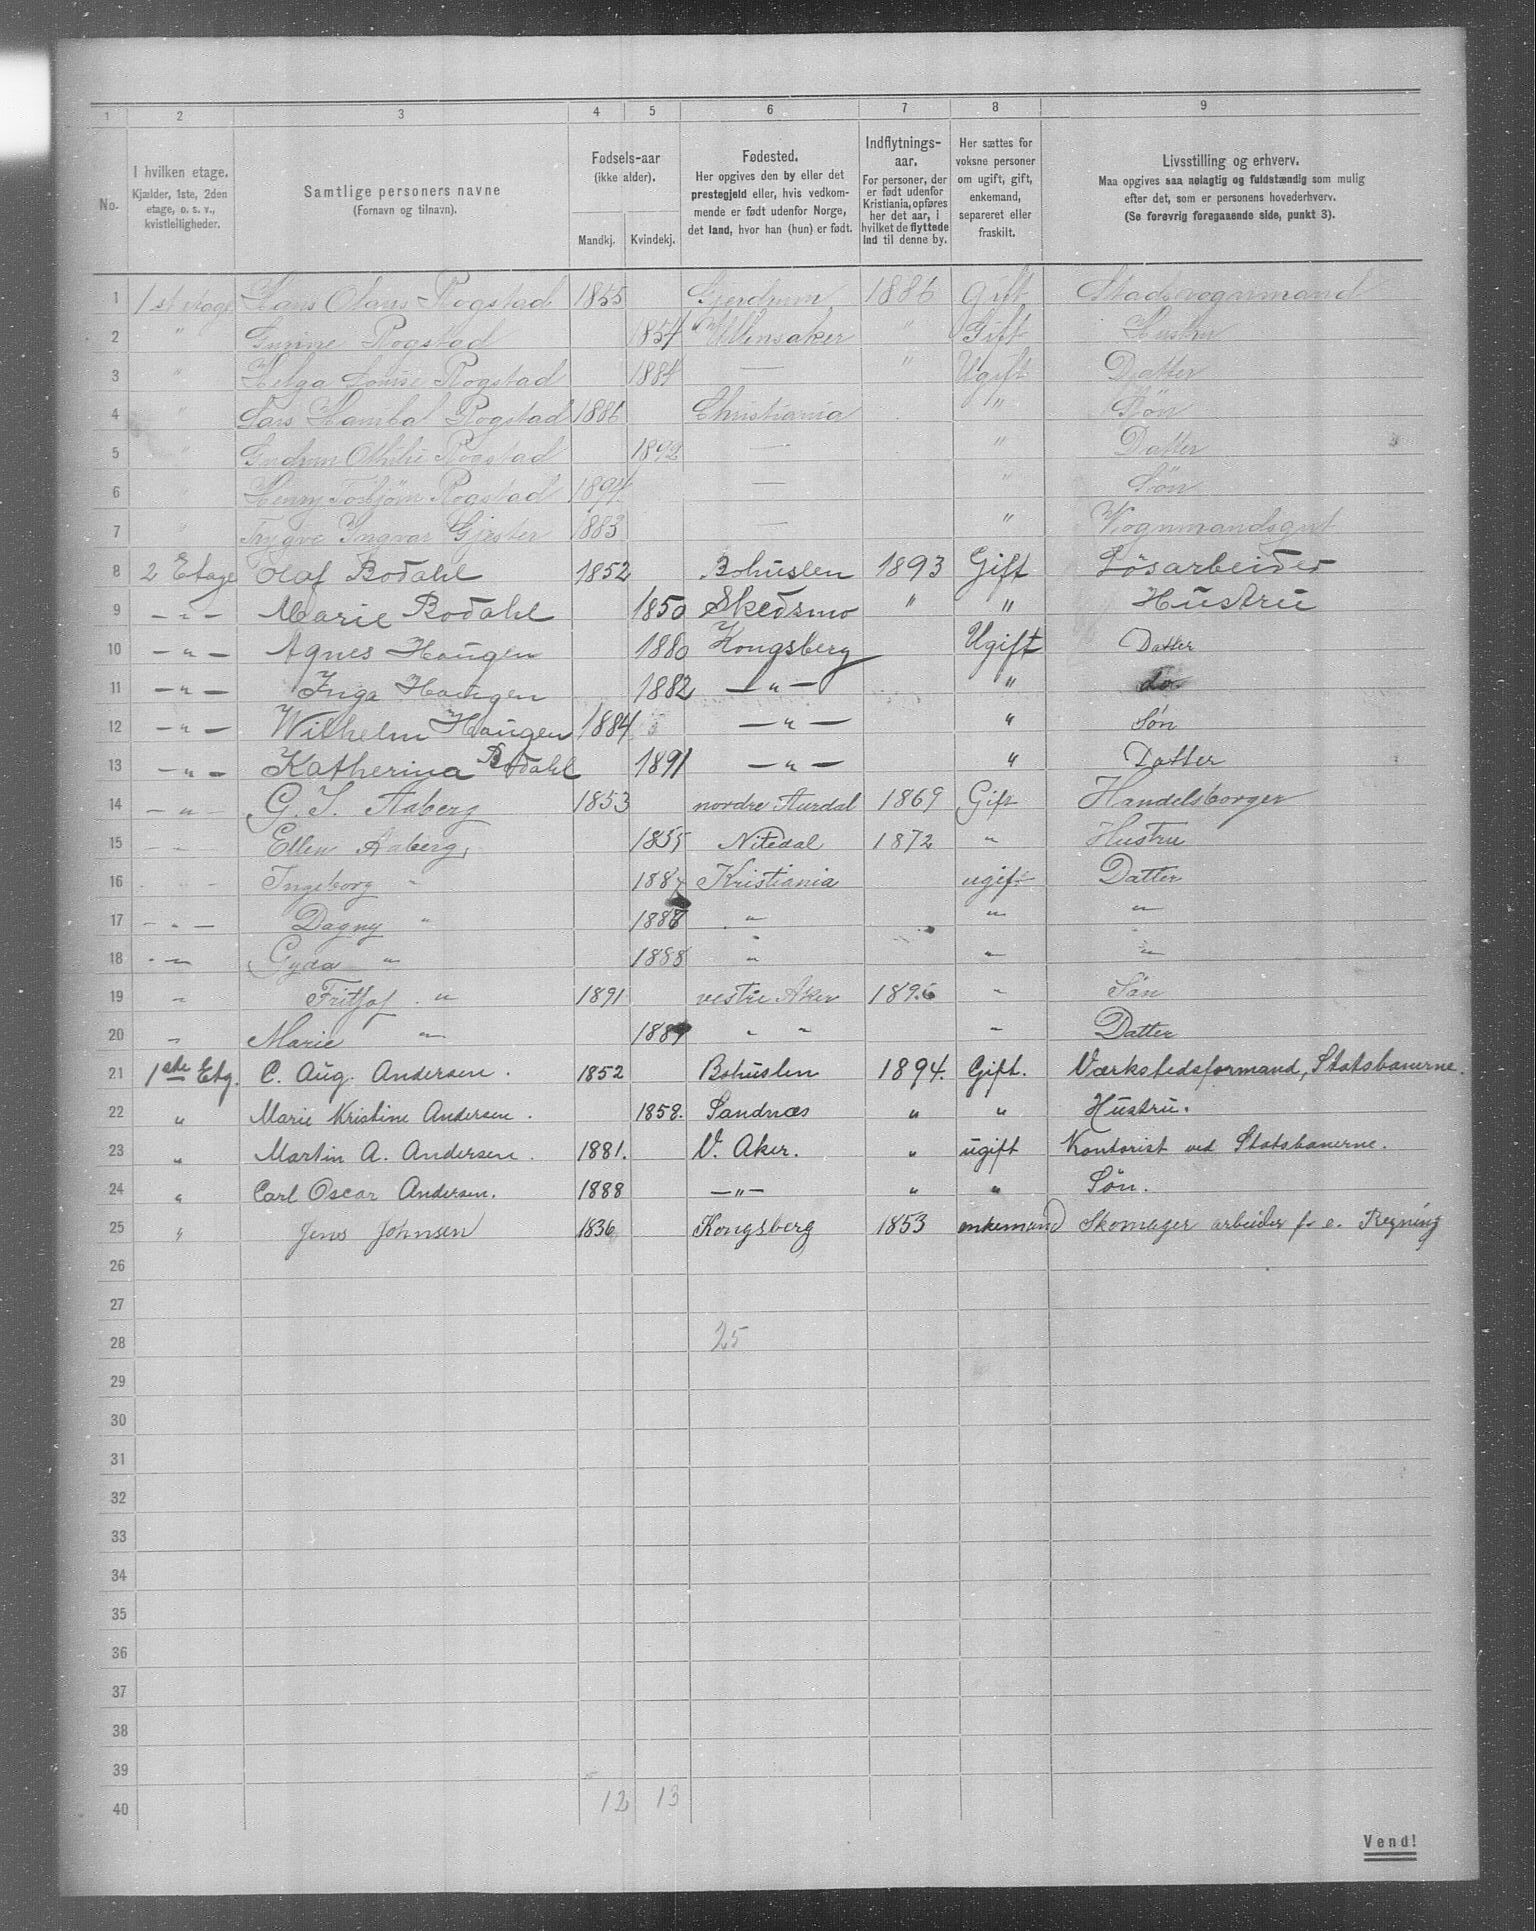 1 2 3 4 5 6 7 8 9
No.
I hvilken etage.
Kjælder, 1ste, 2den
etage, o. s. v.,
kvistleiligheder.
Samtlige personers navne
(Fornavn og tilnavn).
Fødsels-aar
(ikke alder).
Mandkj. Kvindekj.
Fødested.
Her opgives den by eller det
prestegjeld eller, hvis vedkom-
mende er født udenfor Norge,
det land, hvor han (hun) er født.
Indflytnings-
aar.
For personer, der
er født udenfor
Kristiania, opføres
her det aar, i
hvilket de flyttede
ind til denne by.
Her sættes for
voksne personer
om ugift, gift,
enkemand,
separeret eller
fraskilt.
Livsstilling og erhverv.
Maa opgives saa nøiagtig og fuldstændig som mulig
efter det, som er personens hovederhverv.
(Se forøvrig foregaaende side, punkt 3).
1 1st etage Hans Olaus Rogstad 1855 Gjerdrum 1886 Gift Stadsvognmand
2 " Gurine Rogstad 1854 Ullensaker " Gift Hustru
3 " Helga Louise Rogstad 1884 — " Ugift Datter
4 " Lars Rogstad 1886 Christiania " Søn
5 " Gudrun Othilie Rogstad 1892 — " Datter
6 " Henry Torbjørn Rogstad 1894 — " Søn
7 " Trygve Ingvar Gjester 1883 — " Vognmandsgut
8 2 Etage Olaf Bodahl 1852 Bohuslen 1893 Gift Løsarbeider
9 — " — Marie Bodahl 1850 Skedsmo " " Hustru
10 — " — Agnes Haugen 1880 Kongsberg Ugift Datter
11 — " — Inga Haugen 1882 — " — " do
12 — " — Wilhelm Haugen 1884 — " — " Søn
13 — " — Katherina Bodahl 1891 — " — " Datter
14 — " G. I. Aaberg 1853 nordre Aurdal 1869 Gift Handelsborger
15 - - Ellen Aaberg 1855 Nitedal 1872 " Hustru
16 - - Ingeborg " 1884 Kristiania ugift Datter
17 - " — Dagny " 1886 " " "
18 - — Gyda " 1888 " " "
19 " Fritjof " 1891 vestre Aker 1896 " Søn
20 " Marie " 1889 " " " Datter
21 1ste Etg. C. Aug. Andersen. 1852 Bohuslen 1894. Gift. Værkstedsformand, Statsbanerne.
22 " Marie Kristine Andersen. 1858. Sandnæs " " Hustru.
23 " Martin A. Andersen. 1881. V. Aker. " ugift Kontorist ved Statsbanerne.
24 " Carl Oscar Andersen. 1888 —"— " " Søn.
25 " Jens Johnsen 1836 Kongsberg 1853 enkemand Skomager arbeider f. e. Regning
26
27
28 25
29
30
31
32
33
34
35
36
37
38
39
40 12 13
Vend!